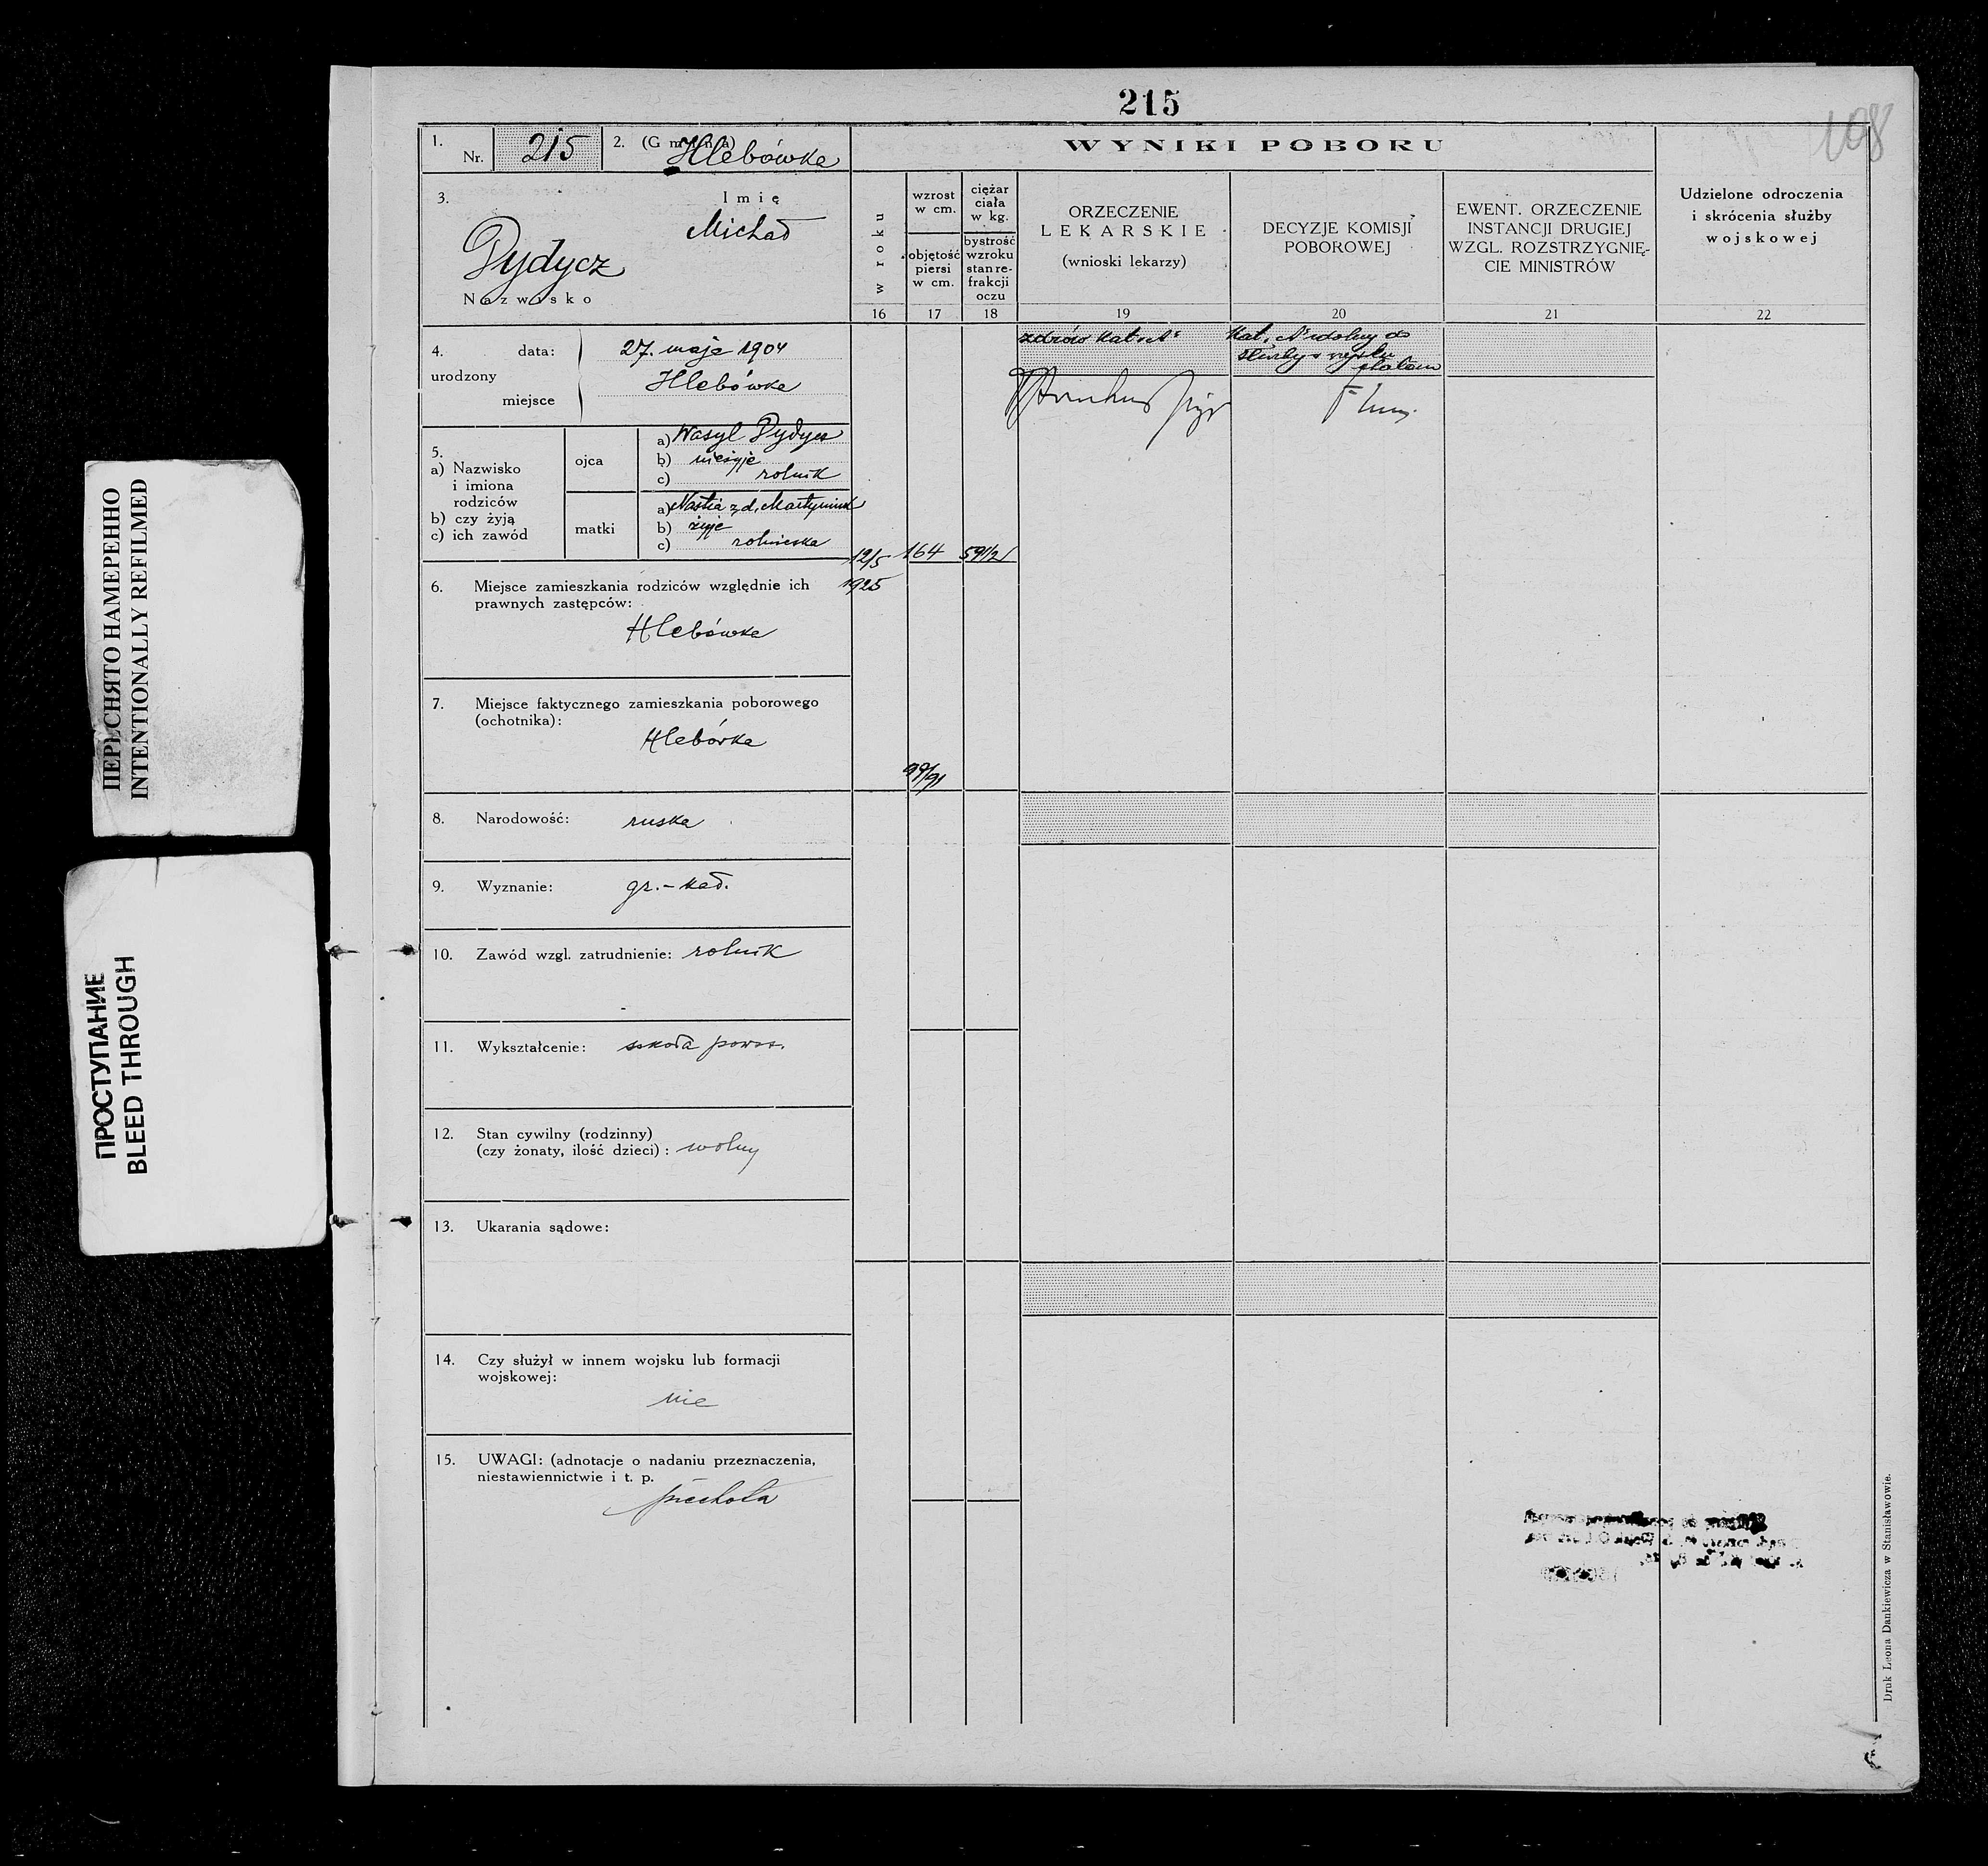 215
108
1. Nr. 215
2. (Gmina) Hlebówka
WYNIKI POBORU
3. Imię
Michał
Dydycz
Nazwisko
w roku
wzrost
w cm.
objętość
piersi
w cm.
ciężar
ciała
w kg.
bystrość
wzroku
stan re-
frakcji
oczu
ORZECZENIE
LEKARSKIE
(wnioski lekarzy)
DECYZJE KOMISJI
POBOROWEJ
EWENT. ORZECZENIE
INSTANCJI DRUGIEJ
WZGL. ROZSTRZYGNIĘ-
CIE MINISTRÓW
Udzielone odroczenia
i skrócenia służby
wojskowej
16 17 18 19 20 21 22
4. urodzony
data: 27. maja 1904
miejsce Hlebówka
zdrów kat. A
Kat. A zdolny do
służby w wojsku
stałem
5.
a) Nazwisko
i imiona
rodziców
b) czy żyją
c) ich zawód
ojca
a) Wasyl Dydycz
b) nieżyje
c) rolnik
matki
a) Nastia z d. Martyniuk
b) żyje
c) rolniczka
12/5 164 59 1/2
1925
6. Miejsce zamieszkania rodziców względnie ich
prawnych zastępców:
Hlebówka
7. Miejsce faktycznego zamieszkania poborowego
(ochotnika):
Hlebówka
99/91
8. Narodowość: ruska
9. Wyznanie: gr.-kat.
10. Zawód wzgl. zatrudnienie: rolnik
11. Wykształcenie: szkoła powsz.
12. Stan cywilny (rodzinny)
(czy żonaty, ilość dzieci): wolny
13. Ukarania sądowe:
14. Czy służył w innem wojsku lub formacji
wojskowej:
nie
15. UWAGI: (adnotacje o nadaniu przeznaczenia,
niestawiennictwie i t. p.
piechota
Druk Leona Dankiewicza w Stanisławowie.
ПЕРЕСНЯТО НАМЕРЕННО
INTENTIONALLY REFILMED
ПРОСТУПАНИЕ
BLEED THROUGH